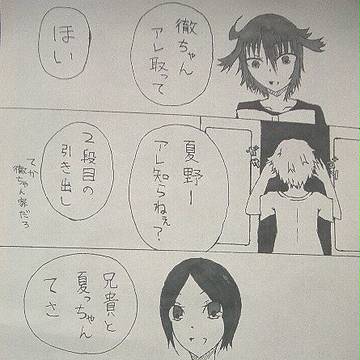 徹ちゃん
アレ取って
ほい
夏野ー
アレ知らねぇ?
2段目の
引き出し
てか
徹ちゃん家だろ
兄貴と
夏っちゃん
てさ